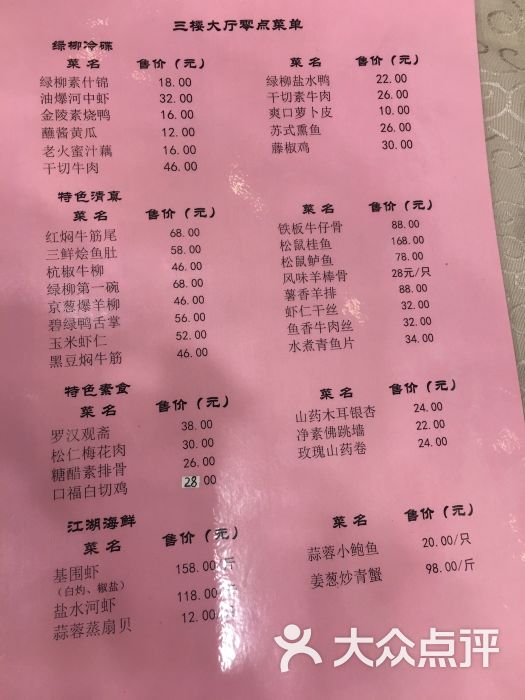 三楼大厅零点菜单
绿柳冷碟
菜名 售价（元） 菜名 售价（元）
绿柳素什锦 18.00 绿柳盐水鸭 22.00
油爆河中虾 32.00 干切素牛肉 26.00
金陵素烧鸭 16.00 爽口萝卜皮 10.00
蘸酱黄瓜 12.00 苏式熏鱼 26.00
老火蜜汁藕 16.00 藤椒鸡 30.00
干切牛肉 46.00
特色清真
菜名 售价（元） 菜名 售价（元）
红焖牛筋尾 68.00 铁板牛仔骨 88.00
三鲜烩鱼肚 58.00 松鼠桂鱼 168.00
杭椒牛柳 46.00 松鼠鲈鱼 78.00
绿柳第一碗 68.00 风味羊棒骨 28元/只
京葱爆羊柳 46.00 薯香羊排 88.00
碧绿鸭舌掌 56.00 虾仁干丝 32.00
玉米虾仁 52.00 鱼香牛肉丝 32.00
黑豆焖牛筋 46.00 水煮青鱼片 34.00
特色素食
菜名 售价（元） 菜名 售价（元）
罗汉观斋 38.00 山药木耳银杏 24.00
松仁梅花肉 30.00 净素佛跳墙 22.00
糖醋素排骨 26.00 玫瑰山药卷 24.00
口福白切鸡 28.00
江湖海鲜
菜名 售价（元） 菜名 售价（元）
基围虾 158.00/斤 蒜蓉小鲍鱼 20.00/只
（白灼、椒盐）
盐水河虾 118.00/ 姜葱炒青蟹 98.00/斤
蒜蓉蒸扇贝 12.00/
大众点评